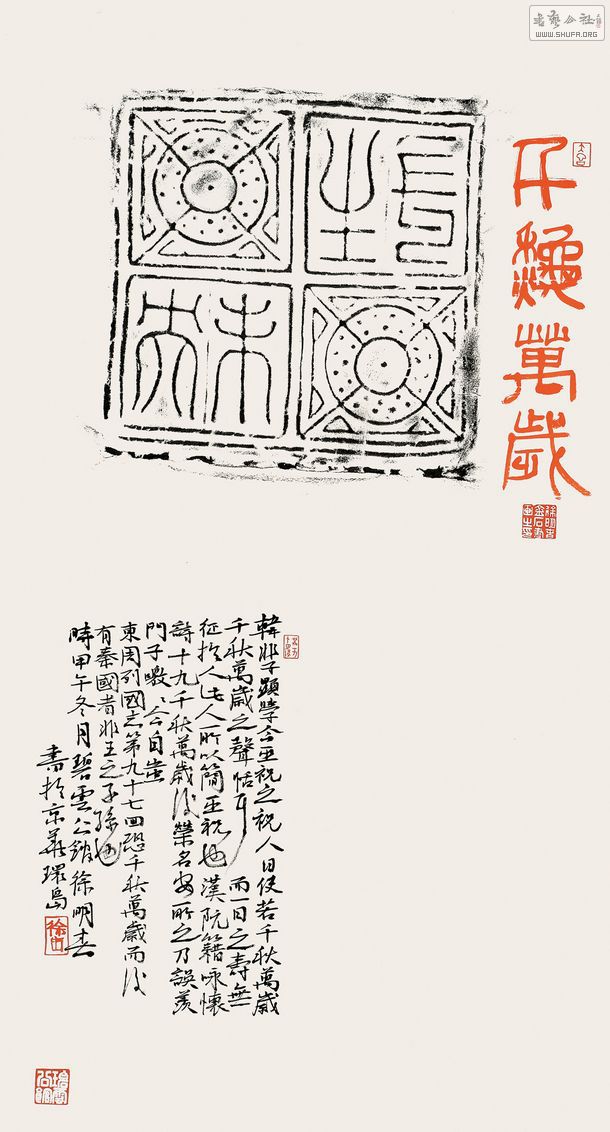 書藝公社
WWW.SHUFA.ORG
千穐萬歲
長生
未央
韓非子顯學今巫祝之祝人曰使若千秋萬歲
千秋萬歲之聲恬耳而一日之壽無
征於人此人所以簡巫祝也漢阮籍詠懷
詩十九千秋萬歲後榮名安所之乃誤羨
門子噭〻令自蚩
東周列國志第九十七回恐千秋萬歲而後
有秦國者非王之子孫也
時甲午冬月碧雲公館徐明春
書於京華環島